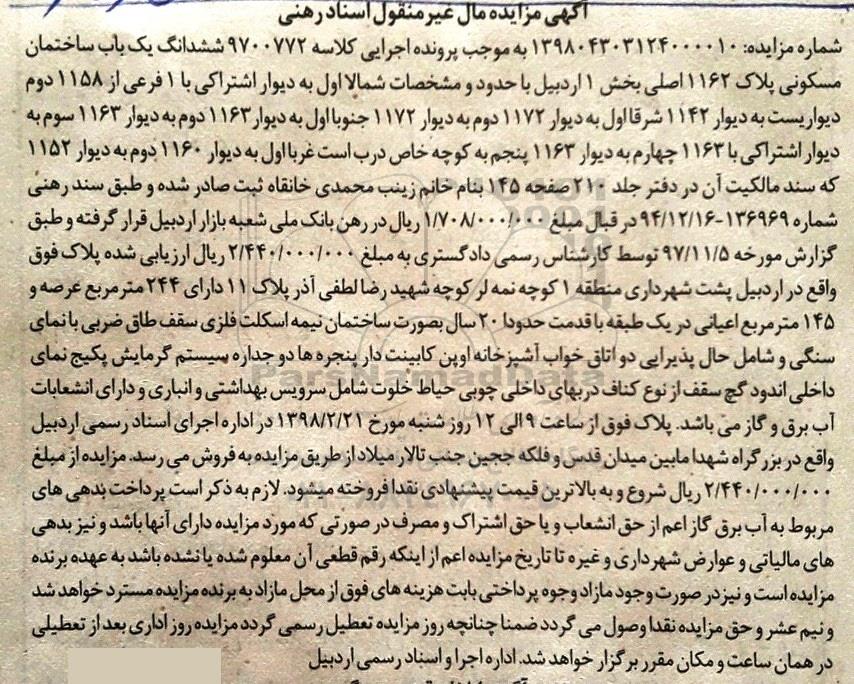 آگهی مزایده مال غیر منقول اسناد رهنی
شماره مزایده: ۱۳۹۸۰۴۳۰۳۱۲۴۰۰۰۰۱۰ به موجب پرونده اجرایی کلاسه ۹۷۰۰۷۷۲ ششدانگ یک باب ساختمان
مسکونی پلاک ۱۱۶۲ اصلی بخش ۱ اردبیل با حدود و مشخصات شمالا اول به دیوار اشتراکی با ۱ فرعی از ۱۱۵۸ دوم
دیواریست به دیوار ۱۱۴۲ شرقا اول به دیوار ۱۱۷۲ دوم به دیوار ۱۱۷۲ جنوبا اول به دیوار ۱۱۶۳ دوم به دیوار ۱۱۶۳ سوم به
دیوار اشتراکی با ۱۱۶۳ چهارم به دیوار ۱۱۶۳ پنجم به کوچه خاص درب است غربا اول به دیوار ۱۱۶۰ دوم به دیوار ۱۱۵۲
که سند مالکیت آن در دفتر جلد ۲۱۰ صفحه ۱۴۵ بنام خانم زینب محمدی خانقاه ثبت صادر شده و طبق سند رهنی
شماره ۱۳۶۹۶۹-۹۴/۱۲/۱۶ در قبال مبلغ ۱/۷۰۸/۰۰۰/۰۰۰ ریال در رهن بانک ملی شعبه بازار اردبیل قرار گرفته و طبق
گزارش مورخه ۹۷/۱۱/۵ توسط کارشناس رسمی دادگستری به مبلغ ۲/۴۴۰/۰۰۰/۰۰۰ ریال ارزیابی شده پلاک فوق
واقع در اردبیل پشت شهرداری منطقه ۱ کوچه نمه لر کوچه شهید رضا لطفی آذر پلاک ۱۱ دارای ۲۴۴ مترمربع عرصه و
۱۴۵ مترمربع اعیانی در یک طبقه با قدمت حدودا ۲۰ سال بصورت ساختمان نیمه اسکلت فلزی سقف طاق ضربی با نمای
سنگی و شامل حال پذیرایی دو اتاق خواب آشپزخانه اوپن کابینت دار پنجره ها دو جداره سیستم گرمایش پکیج نمای
داخلی اندود گچ سقف از نوع کناف دربهای داخلی چوبی حیاط خلوت شامل سرویس بهداشتی و انباری و دارای انشعابات
آب برق و گاز می باشد. پلاک فوق از ساعت ۹ الی ۱۲ روز شنبه مورخ ۱۳۹۸/۲/۲۱ در اداره اجرای اسناد رسمی اردبیل
واقع در بزرگراه شهدا مابین میدان قدس و فلکه ججین جنب تالار میلاد از طریق مزایده به فروش می رسد. مزایده از مبلغ
۲/۴۴۰/۰۰۰/۰۰۰ ریال شروع و به بالاترین قیمت پیشنهادی نقدا فروخته میشود. لازم به ذکر است پرداخت بدهی های
مربوط به آب برق گاز اعم از حق انشعاب و یا حق اشتراک و مصرف در صورتی که مورد مزایده دارای آنها باشد و نیز بدهی
های مالیاتی و عوارض شهرداری و غیره تا تاریخ مزایده اعم از اینکه رقم قطعی آن معلوم شده یا نشده باشد به عهده برنده
مزایده است و نیز در صورت وجود مازاد وجوه پرداختی بابت هزینه های فوق از محل مازاد به برنده مزایده مسترد خواهد شد
و نیم عشر و حق مزایده نقدا وصول می گردد ضمنا چنانچه روز مزایده تعطیل رسمی گردد مزایده روز اداری بعد از تعطیلی
در همان ساعت و مکان مقرر برگزار خواهد شد. اداره اجرا و اسناد رسمی اردبیل